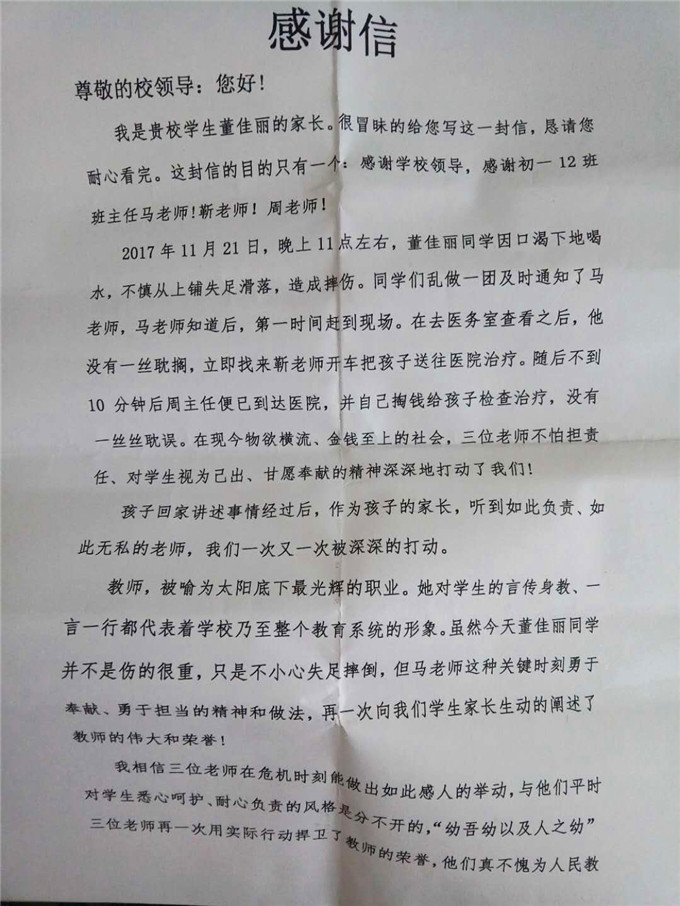 感谢信
尊敬的校领导：您好！
我是贵校学生董佳丽的家长。很冒昧的给您写这一封信，恳请您
耐心看完。这封信的目的只有一个：感谢学校领导，感谢初一 12 班
班主任马老师！靳老师！周老师！
2017 年 11 月 21 日，晚上 11 点左右，董佳丽同学因口渴下地喝
水，不慎从上铺失足滑落，造成摔伤。同学们乱做一团及时通知了马
老师，马老师知道后，第一时间赶到现场。在去医务室查看之后，他
没有一丝耽搁，立即找来靳老师开车把孩子送往医院治疗。随后不到
10 分钟后周主任便已到达医院，并自己掏钱给孩子检查治疗，没有
一丝丝耽误。在现今物欲横流、金钱至上的社会，三位老师不怕担责
任、对学生视为己出、甘愿奉献的精神深深地打动了我们！
孩子回家讲述事情经过后，作为孩子的家长，听到如此负责、如
此无私的老师，我们一次又一次被深深的打动。
教师，被喻为太阳底下最光辉的职业。她对学生的言传身教、一
言一行都代表着学校乃至整个教育系统的形象。虽然今天董佳丽同学
并不是伤的很重，只是不小心失足摔倒，但马老师这种关键时刻勇于
奉献、勇于担当的精神和做法，再一次向我们学生家长生动的阐述了
教师的伟大和荣誉！
我相信三位老师在危机时刻能做出如此感人的举动，与他们平时
对学生悉心呵护、耐心负责的风格是分不开的，“幼吾幼以及人之幼”
三位老师再一次用实际行动捍卫了教师的荣誉，他们真不愧为人民教